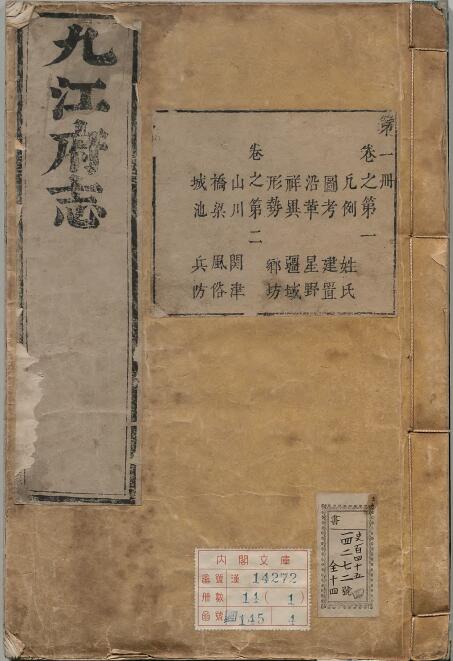 九江府志
第一冊
卷之第一
凡例 姓氏
圖考 建置
沿革 星野
祥異 疆域
形勢 鄉坊
卷之第二
山川 関津
橋梁 風俗
城池 兵防
書
史百四十五
一四二七二號
全十四
內閣文庫
番號 漢 14272
冊數 14(1)
函號 145 4